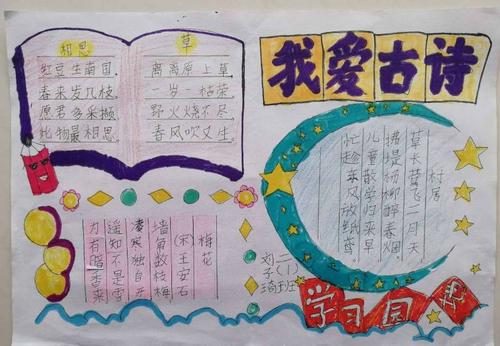 我爱古诗
相思
红豆生南国。
春来发几枝。
愿君多采撷
此物最相思。
草
离离原上草
一岁一枯荣
野火烧不尽
春风吹又生
村居
草长莺飞二月天
拂堤杨柳醉春烟。
儿童散学归来早
忙趁东风放纸鸢。
梅花
(宋)王安石
墙角数枝梅
凌寒独自开
遥知不是雪
为有暗香来
二(1)班
刘子琦
学习园